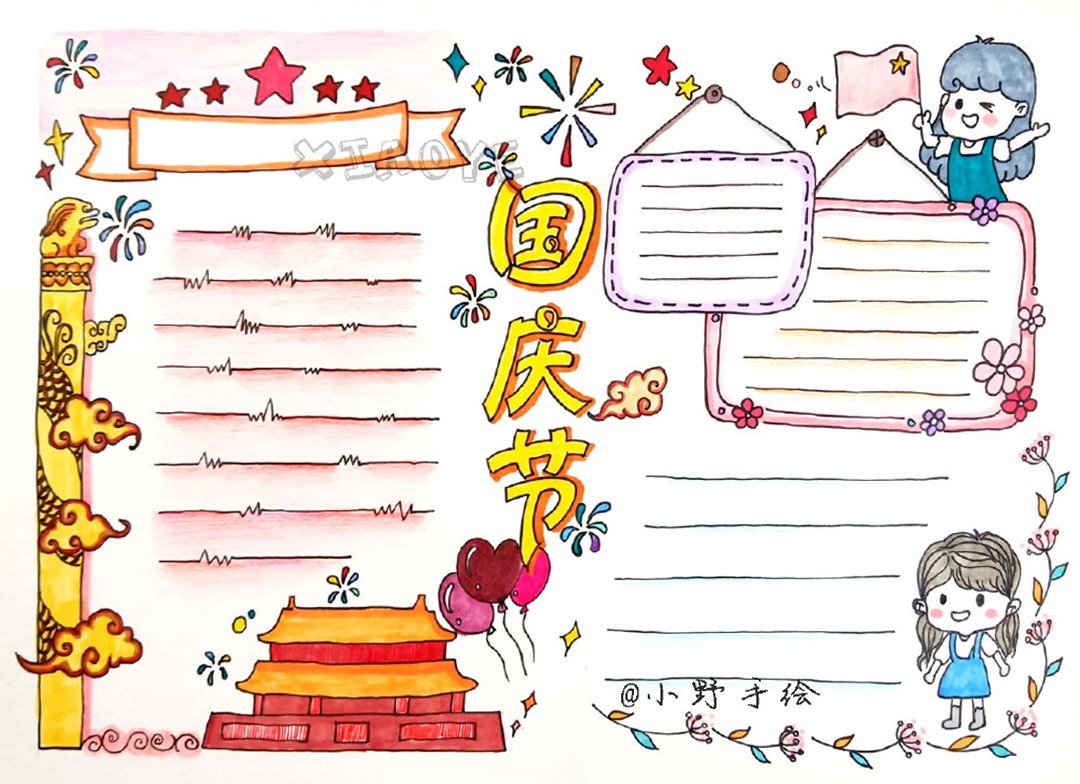 XIAOYE
国庆节
@小野手绘